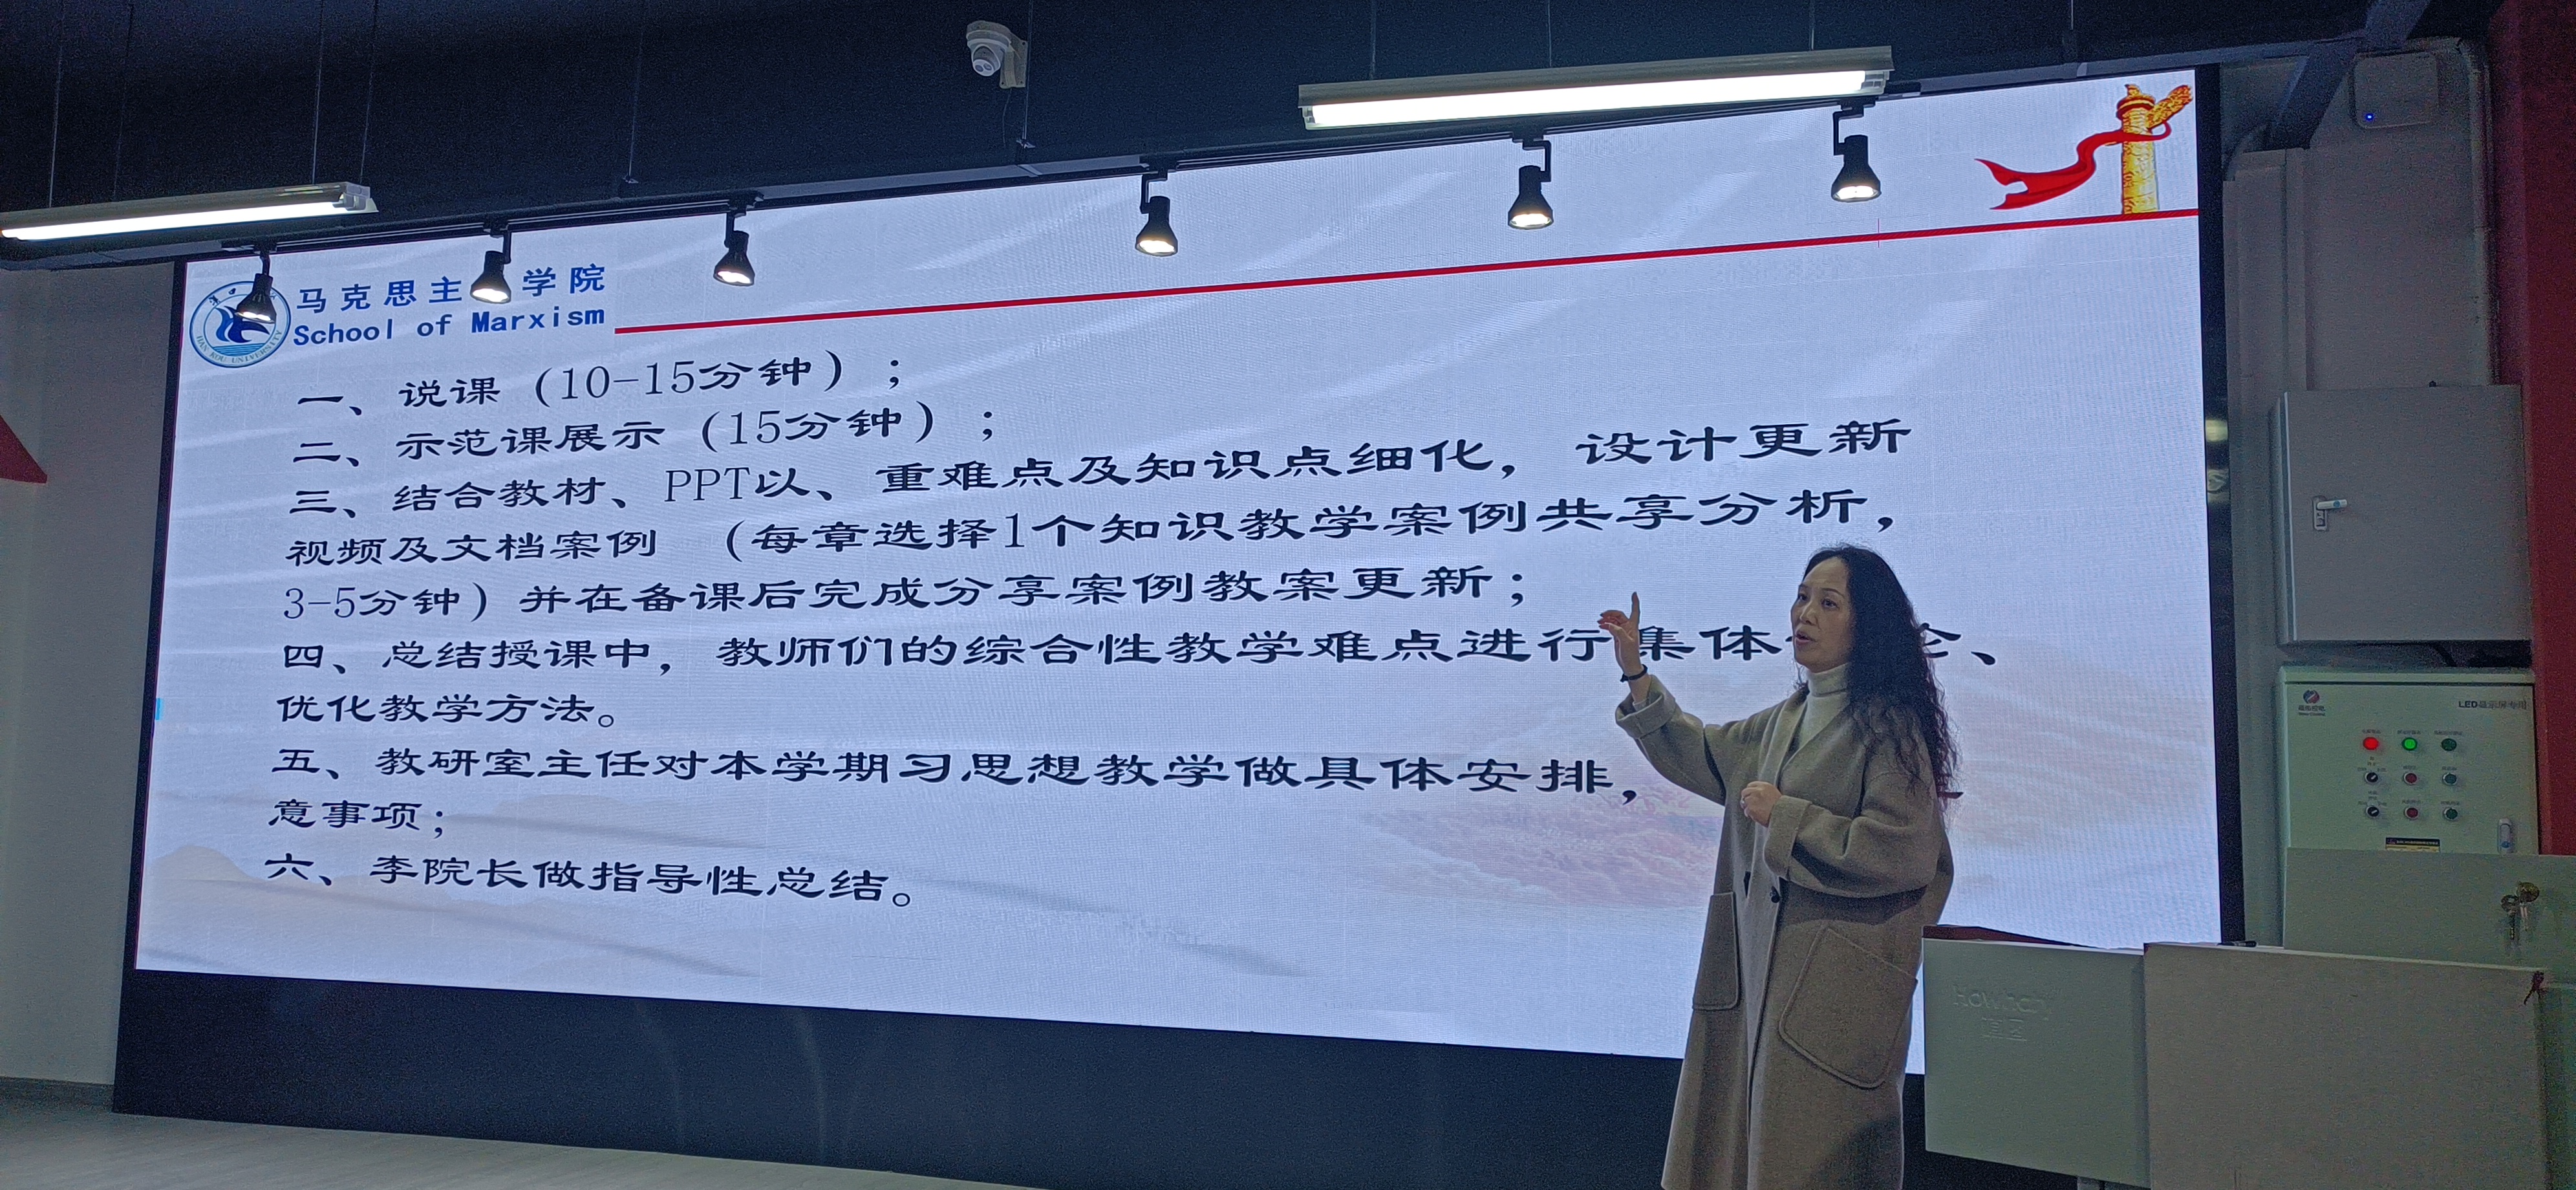 马克思主 学院
School of Marxism
HAN KOU UNIVERSITY
一、说课（10-15分钟）；
二、示范课展示（15分钟）；
三、结合教材、PPT以、重难点及知识点细化，设计更新
视频及文档案例 （每章选择1个知识教学案例共享分析，
3-5分钟）并在备课后完成分享案例教案更新；
四、总结授课中，教师们的综合性教学难点进行集体 论、
优化教学方法。
五、教研室主任对本学期习思想教学做具体安排，
意事项；
六、李院长做指导性总结。